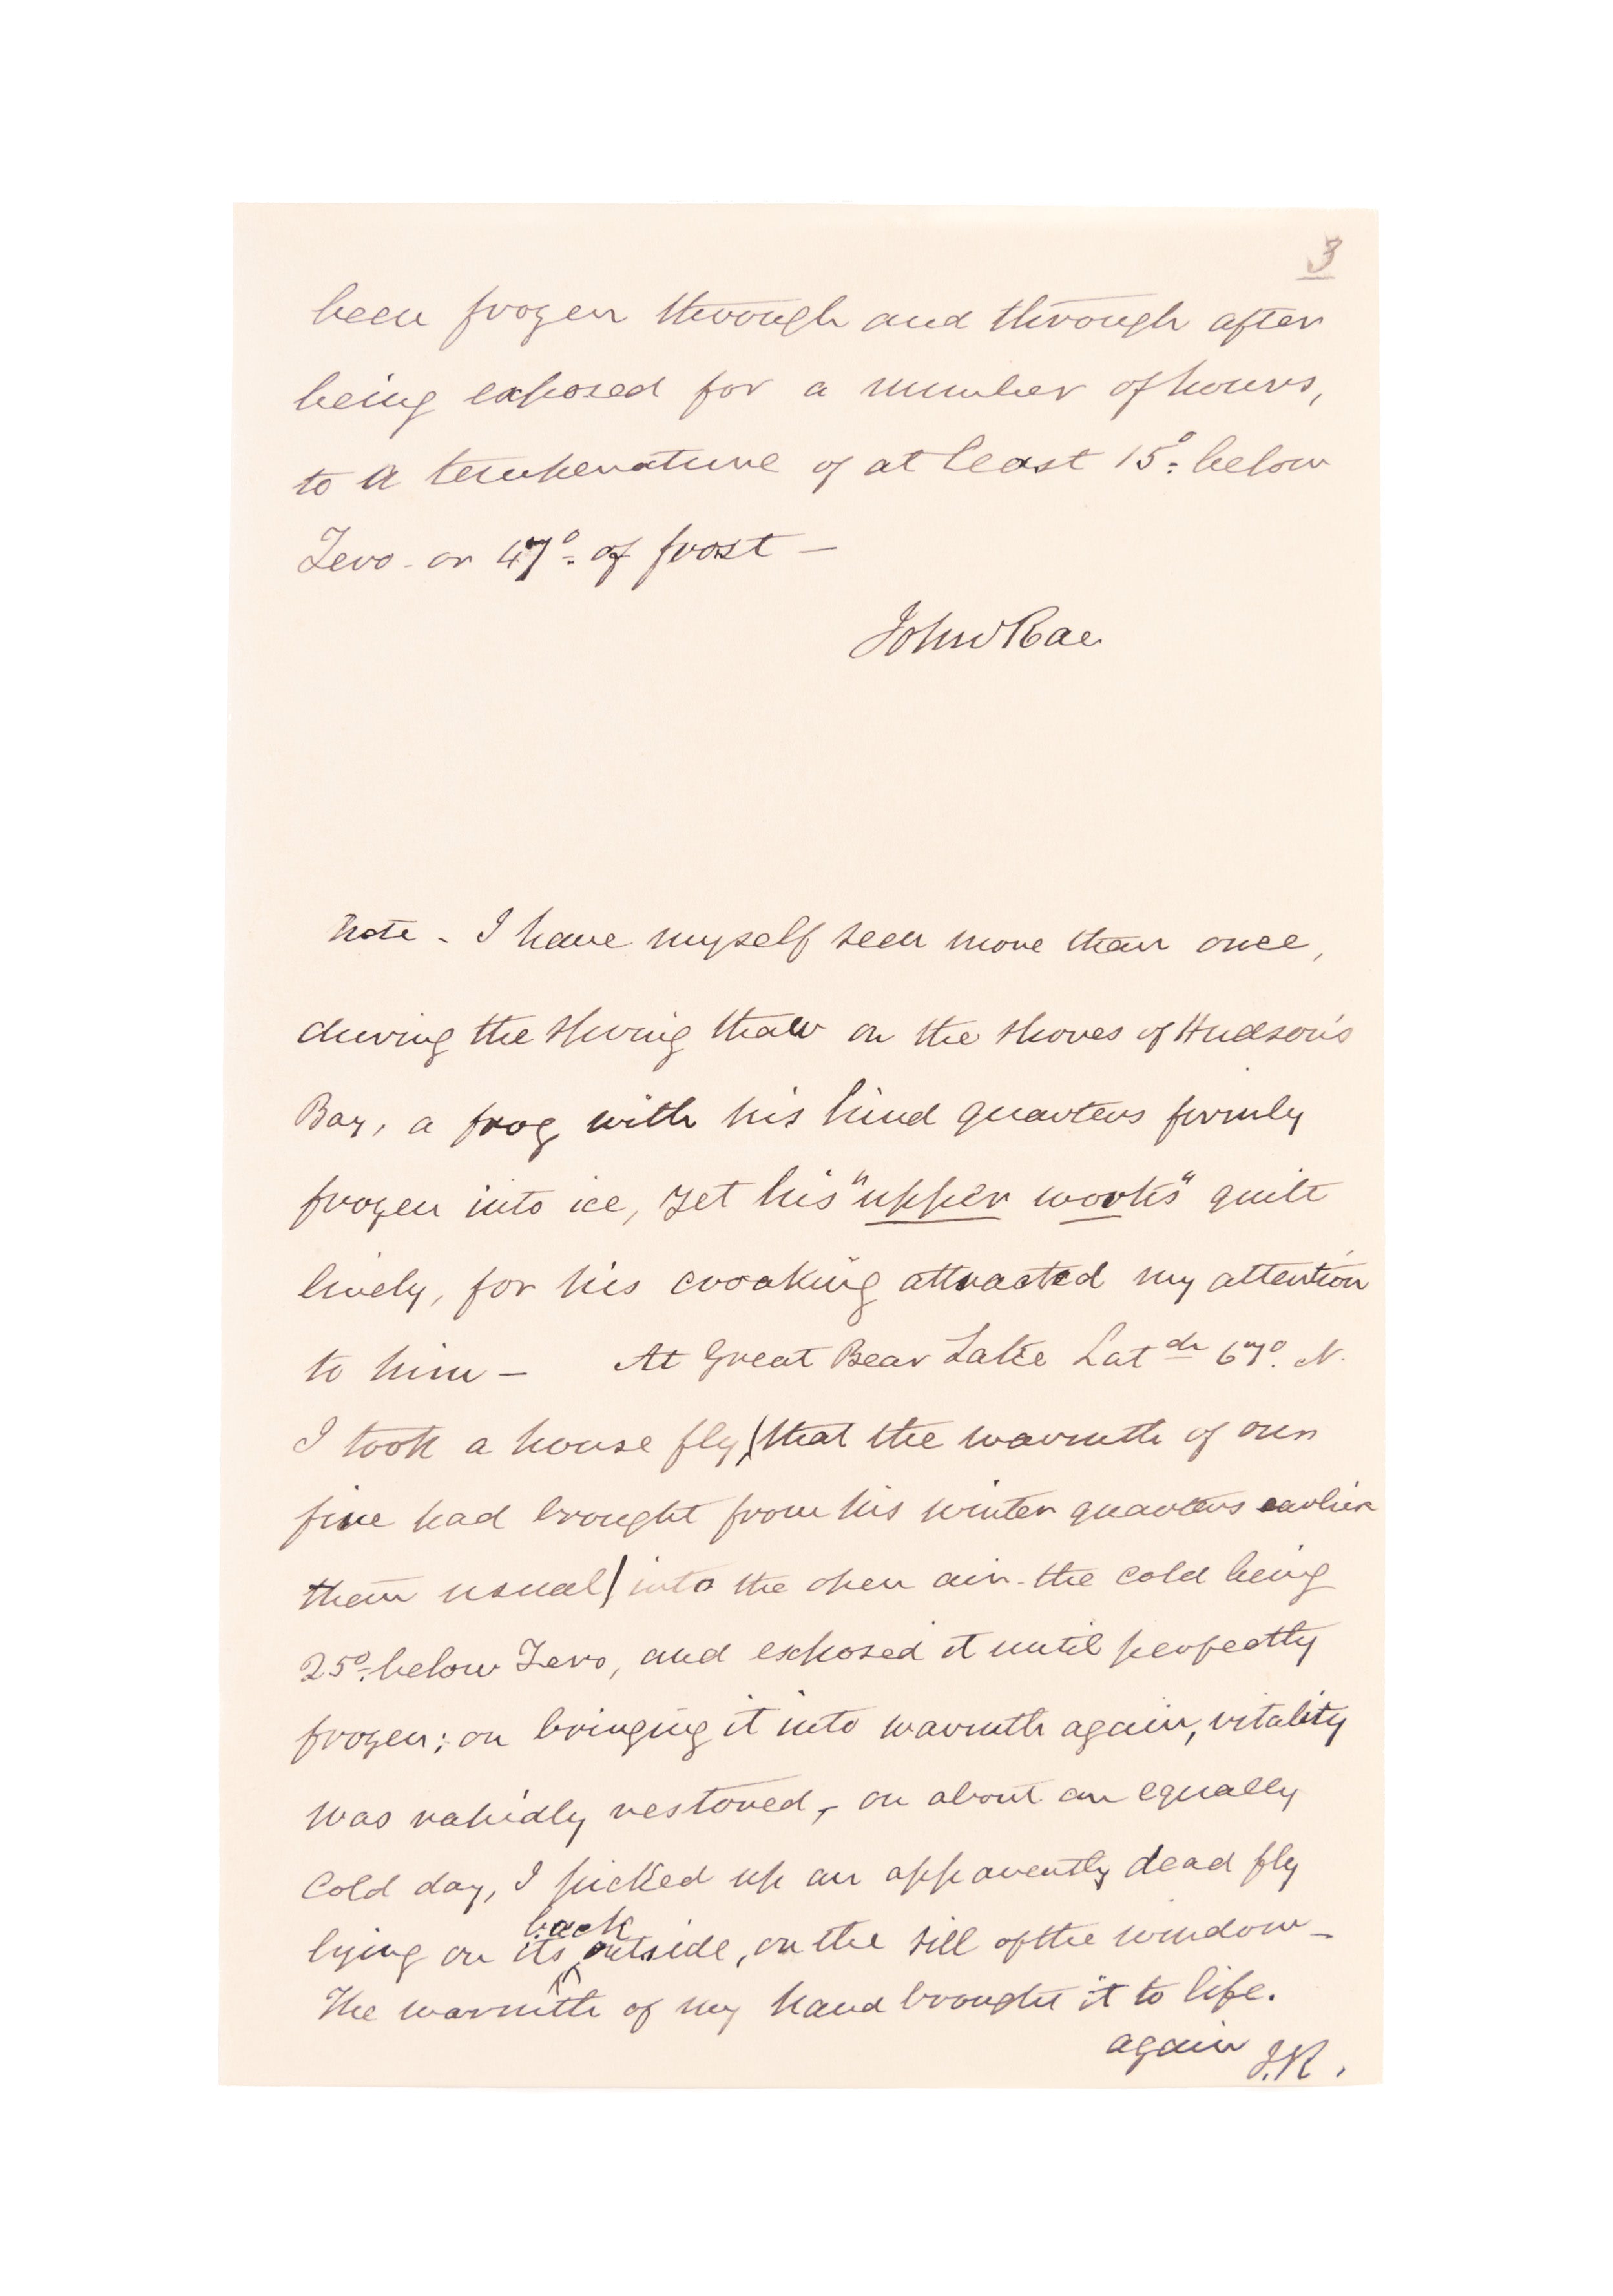 3
been frozen through and through after
being exposed for a number of hours,
to a temperature of at least 15° below
Zero - or 47° of frost —
John Rae
Note - I have myself seen more than once,
during the Spring thaw on the shores of Hudson's
Bay, a frog with his hind quarters firmly
frozen into ice, yet his "upper works" quite
lively, for his croaking attracted my attention
to him — At Great Bear Lake Latde 67° N.
I took a house fly, (that the warmth of our
fire had brought from his winter quarters earlier
than usual) into the open air - the cold being
25° below Zero, and exposed it until perfectly
frozen; on bringing it into warmth again, vitality
was rapidly restored, - on about an equally
Cold day, I picked up an apparently dead fly
back
lying on its outside, on the sill of the window —
The warmth of my hand brought it to life.
again J.R.